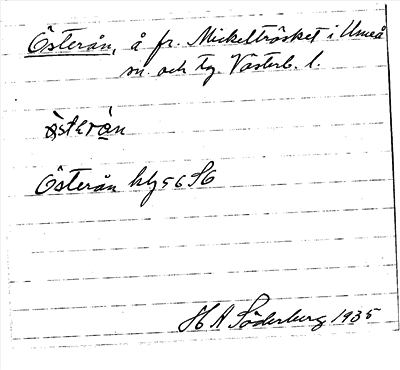 Österån, å fr. Mickelträsket i Umeå
sn. och tg. Västerb. l.
österån
Österån kbl 56 SG
H A Söderberg 1935